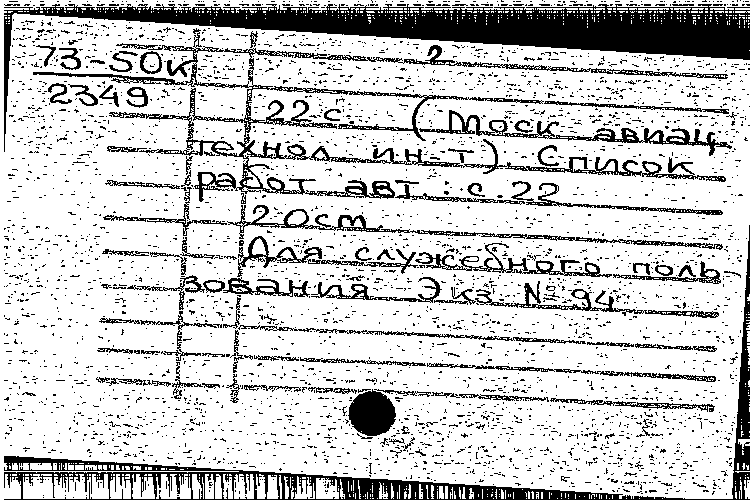 2
73-50к
2349
22 с. (Моск авиац.
технол ин-т). Список
работ авт.: с. 22
20 см.
Для служебного поль
зования Экз №94